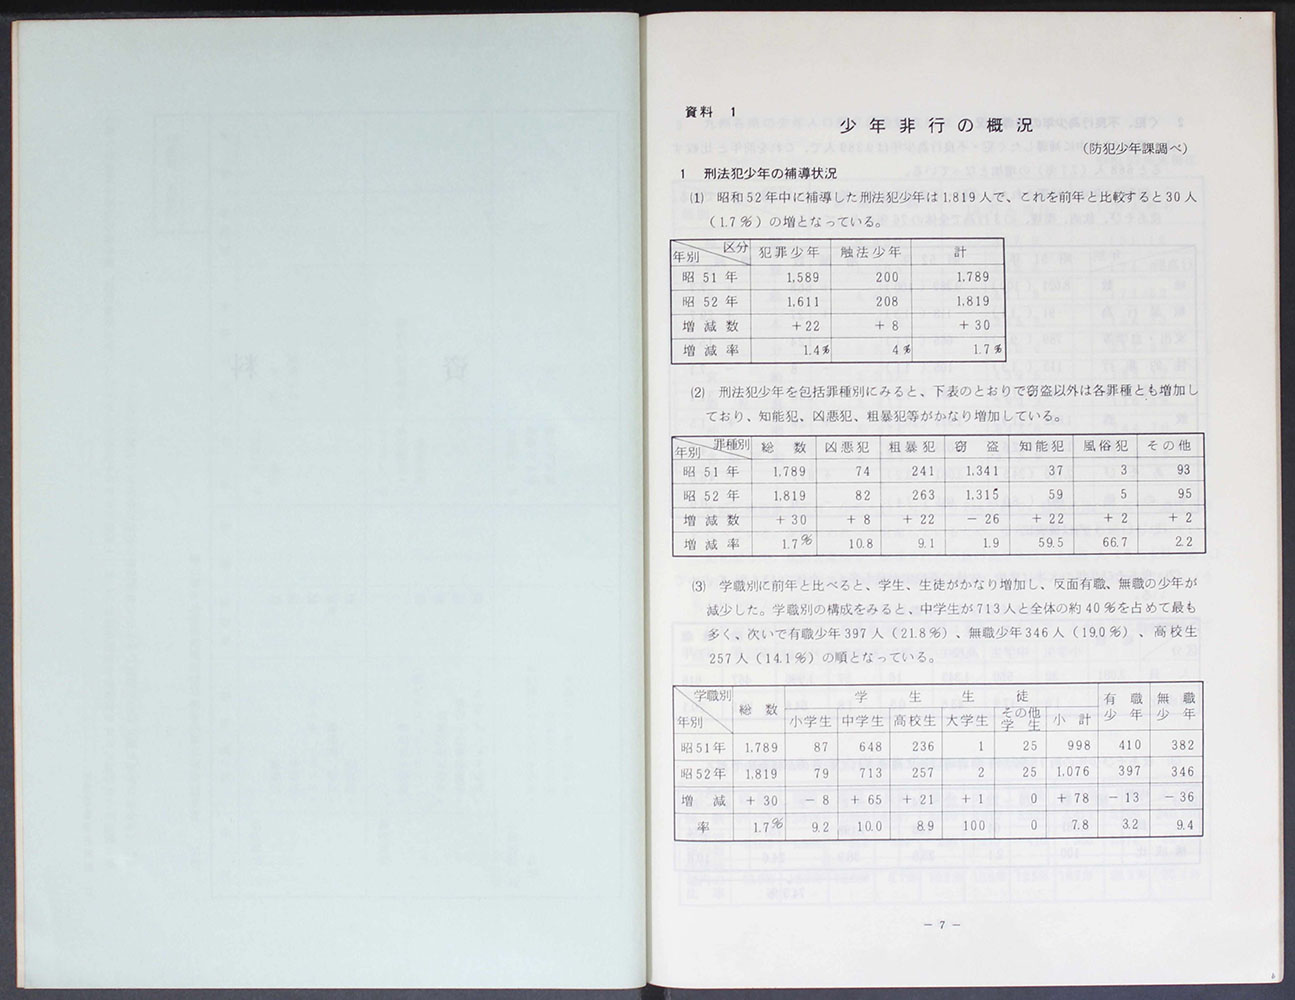 資料 1
少年非行の概況
(防犯少年課調べ)
1 刑法犯少年の補導状況
(1) 昭和52年中に補導した刑法犯少年は1,819人で、これを前年と比較すると30人
(1.7%)の増となっている。
区分 年別 犯罪少年 触法少年 計
昭51年 1,589 200 1,789
昭52年 1,611 208 1,819
増減数 +22 +8 +30
増減率 1.4% 4% 1.7%
(2) 刑法犯少年を包括罪種別にみると、下表のとおりで窃盗以外は各罪種とも増加し
ており、知能犯、凶悪犯、粗暴犯等がかなり増加している。
罪種別 年別 総数 凶悪犯 粗暴犯 窃盗 知能犯 風俗犯 その他
昭51年 1,789 74 241 1,341 37 3 93
昭52年 1,819 82 263 1,315 59 5 95
増減数 +30 +8 +22 -26 +22 +2 +2
増減率 1.7% 10.8 9.1 1.9 59.5 66.7 2.2
(3) 学職別に前年と比べると、学生、生徒がかなり増加し、反面有職、無職の少年が
減少した。学職別の構成をみると、中学生が713人と全体の約40%を占めて最も
多く、次いで有職少年397人(21.8%)、無職少年346人(19.0%)、高校生
257人(14.1%)の順となっている。
学職別 年別 総数 学生生徒 有職少年 無職少年
小学生 中学生 高校生 大学生 その他学生 小計
昭51年 1,789 87 648 236 1 25 998 410 382
昭52年 1,819 79 713 257 2 25 1,076 397 346
増減 +30 -8 +65 +21 +1 0 +78 -13 -36
率 1.7% 9.2 10.0 8.9 100 0 7.8 3.2 9.4
- 7 -